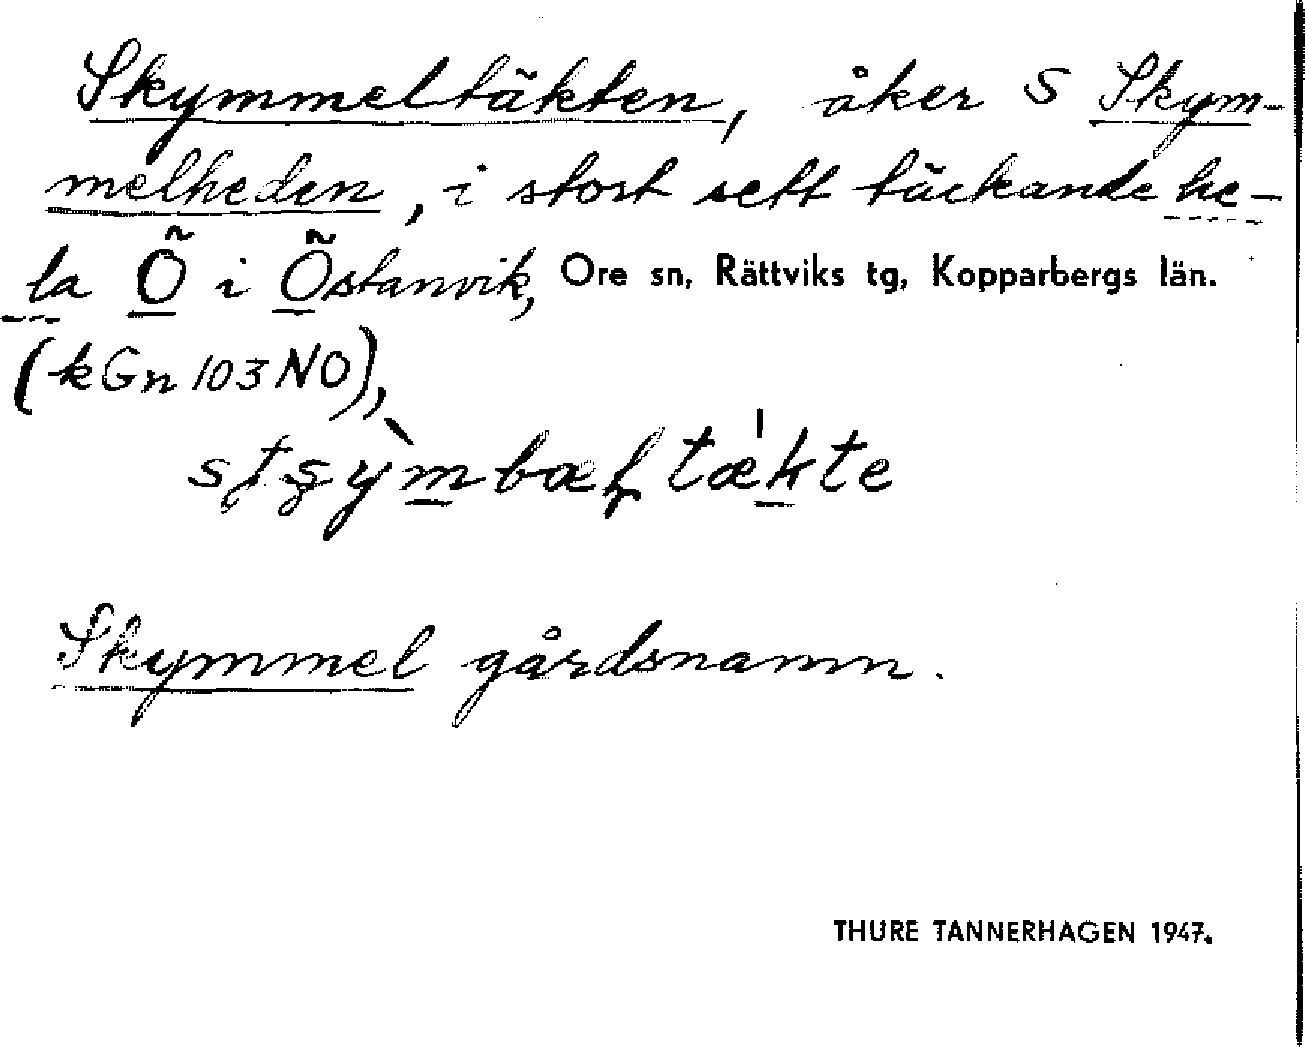 Skymmeltäkten, åker S Skym-
melheden, i stort sett täckande he-
la Ö i Östanvik, Ore sn, Rättviks tg, Kopparbergs län.
(kGn 103 NO),
Skymmel gårdsnamn.
THURE TANNERHAGEN 1947.